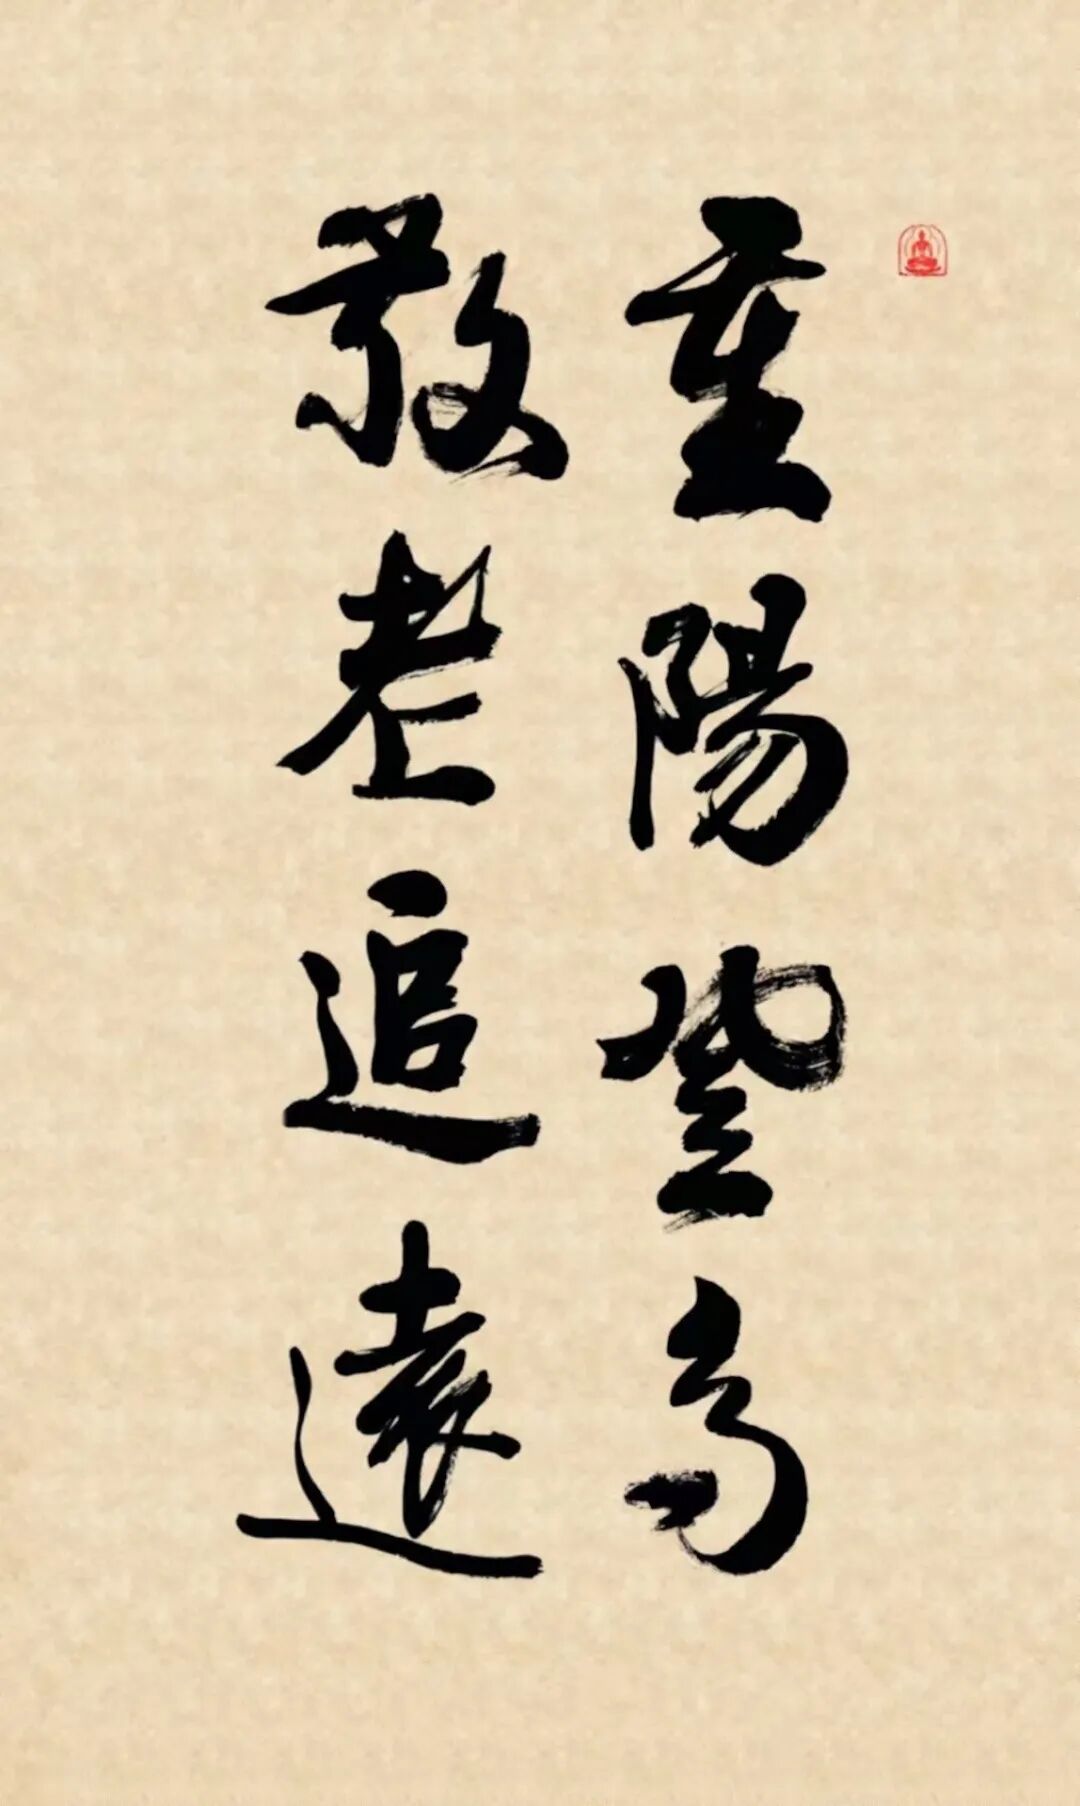 重陽登高
敬老追遠